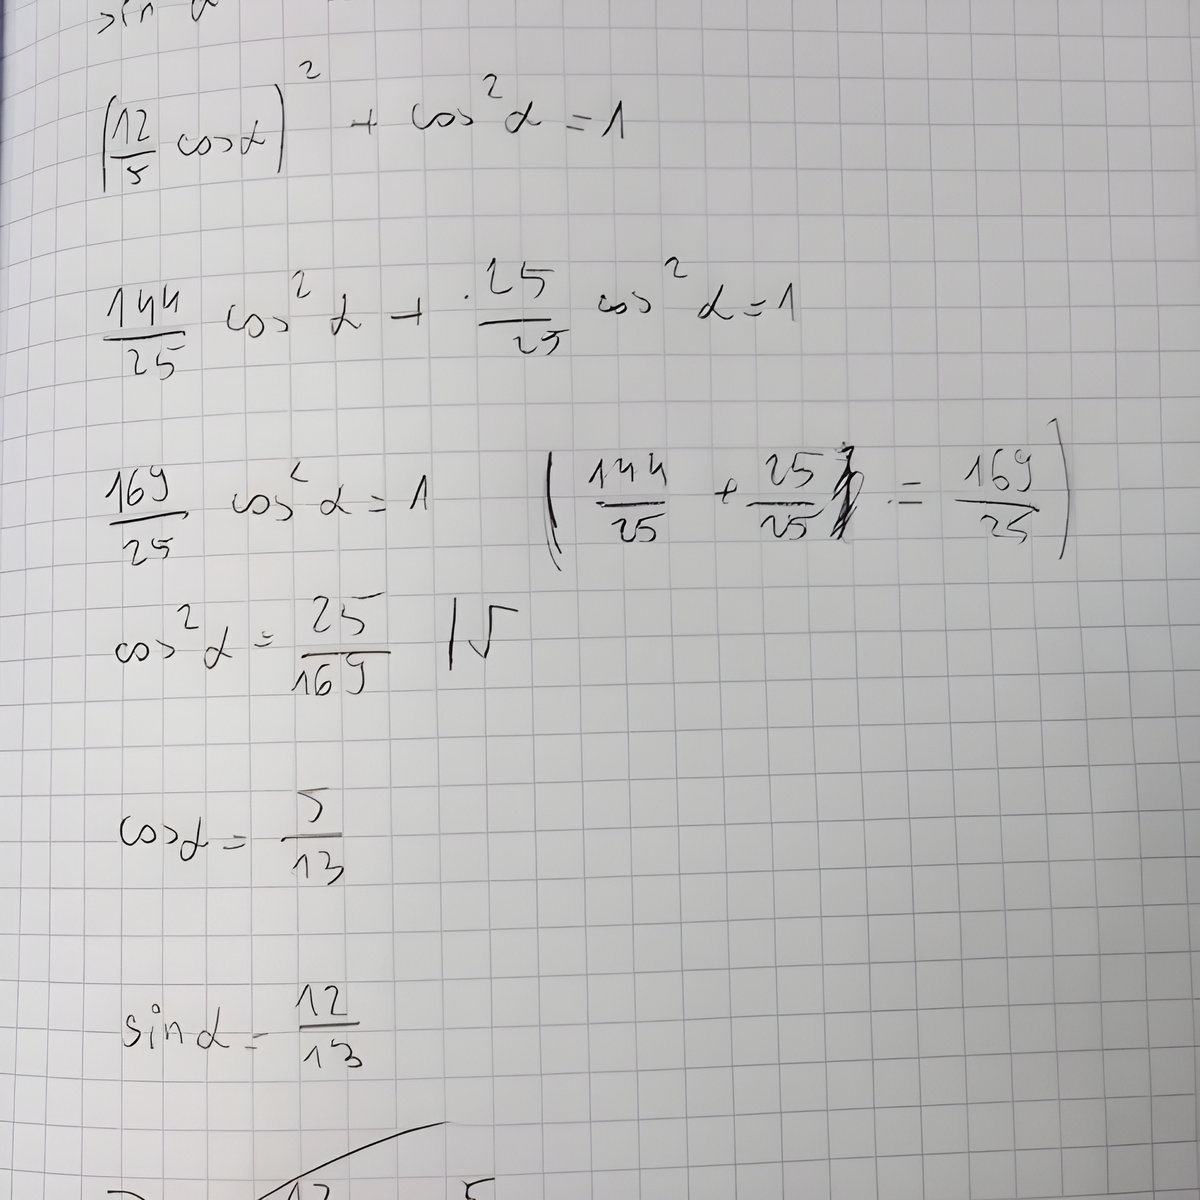 sin α
(12/5 cosα)² + cos²α = 1
144/25 cos²α + 25/25 cos²α = 1
169/25 cos²α = 1 (144/25 + 25/25 = 169/25)
cos²α = 25/169 |√
cosα = 5/13
sinα = 12/13
12 5